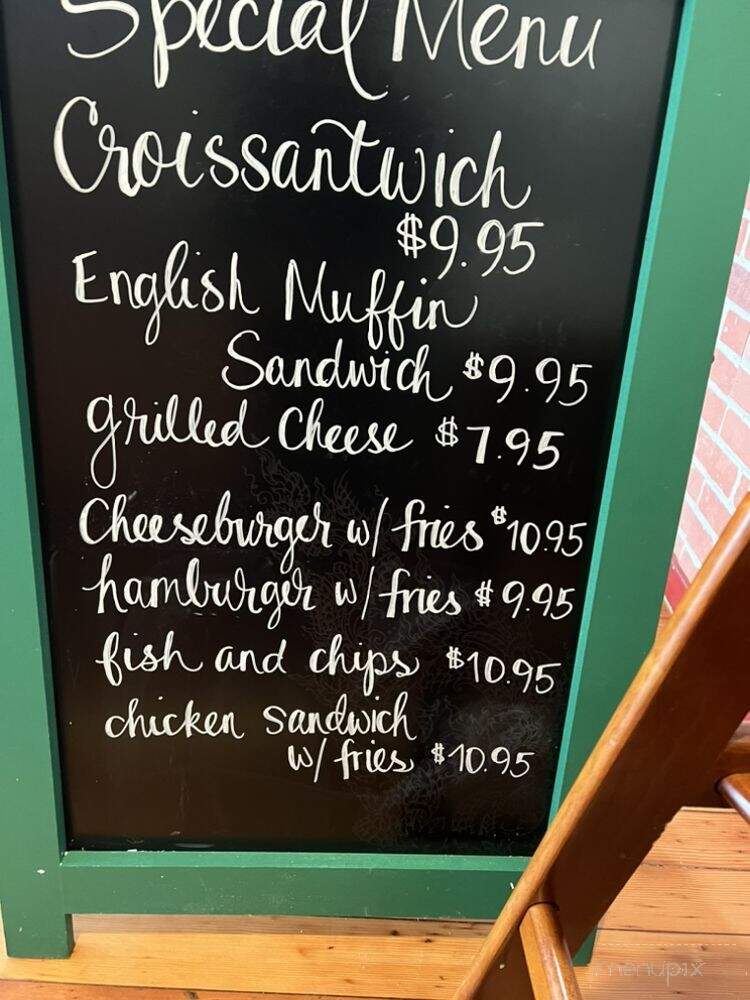 Special Menu
Croissantwich
$9.95
English Muffin
Sandwich $9.95
grilled Cheese $7.95
Cheeseburger w/ fries $10.95
hamburger w/ fries $9.95
fish and chips $10.95
chicken sandwich
w/ fries $10.95
menupix